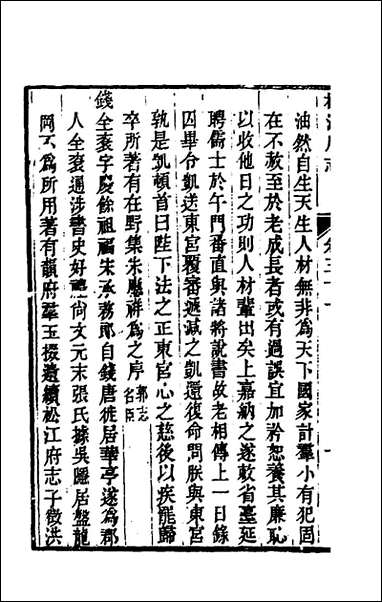 松江府志
油然自生天生人材無非為天下國家計羣小有犯固
在不赦至於老成長者或有過誤宜加矜恕養其廉恥
以收他日之功則人材輩出矣上嘉納之遂敕省臺延
聘儒士於午門番直與諸將說書故老相傳上一日錄
囚畢令凱送東宮覆審遞減之凱還復命問朕與東宮
孰是凱頓首曰陛下法之正東宮心之慈後以疾罷歸
卒所著有在野集朱應祥為之序郭志名臣
錢全袞字慶餘祖福朱承務郎自錢唐徙居華亭遂為郡
人全袞通涉書史好禮尚文元末張氏據吳隱居盤龍
岡不為所用著有韻府羣玉掇遺續松江府志子徵洪